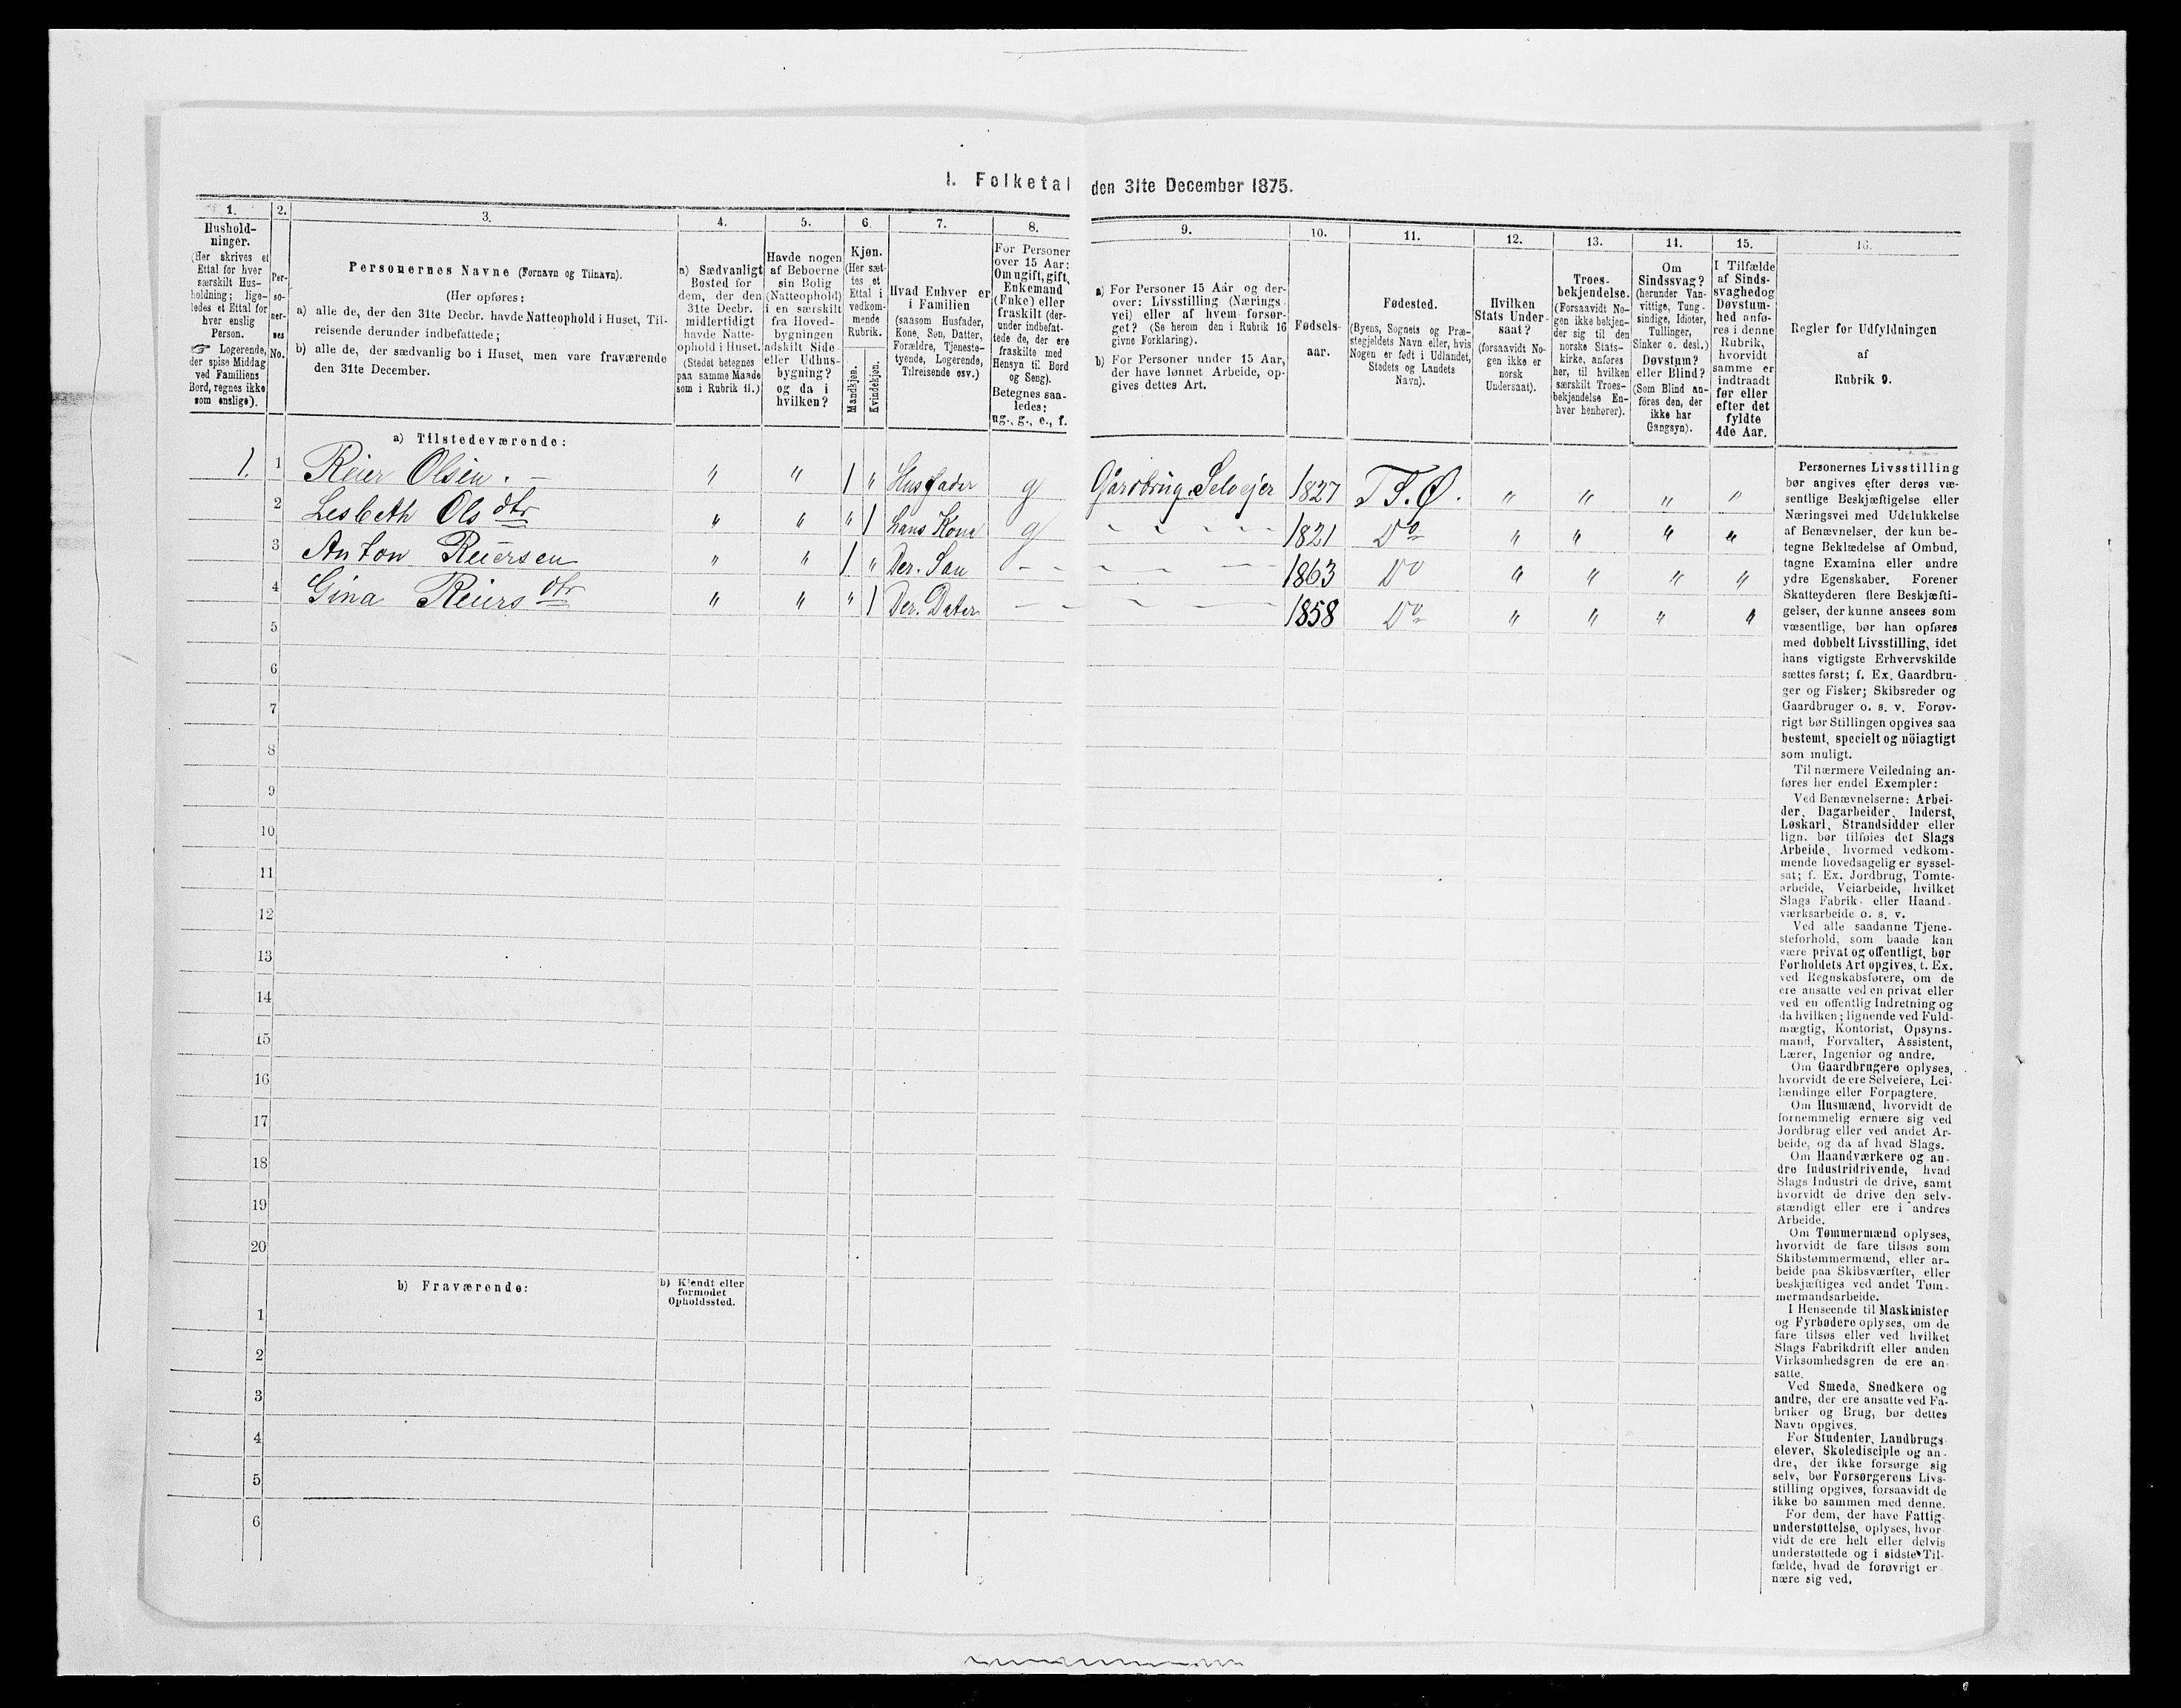 I. Folketal den 31te December 1875.
1. 2. 3. 4. 5. 6. 7. 8. 9. 10. 11. 12. 13. 14. 15. 16.
Hushold-
ninger.
(Her skrives et
Ettal for hver
særskilt Hus-
holdning; lige-
ledes et Ettal for
hver enslig
Person.
☞ Logerende,
der spise Middag
ved Familiens
Bord, regnes ikke
som enslige).
Per-
so-
ner-
nes
No.
Personernes Navne (Fornavn og Tilnavn).
(Her opføres:
a) alle de, der den 31te Decbr. havde Natteophold i Huset, Til-
reisende derunder indbefattede;
b) alle de, der sædvanlig bo i Huset, men vare fraværende
den 31te December.
a) Sædvanligt
Bosted for
dem, der den
31te Decbr.
midlertidigt
havde Natte-
ophold i Huset.
(Stedet betegnes
paa samme Maade
som i Rubrik 11.)
Havde nogen
af Beboerne
sin Bolig
(Natteophold)
i en særskilt
fra Hoved-
bygningen
adskilt Side-
eller Udhus-
bygning?
og da i
hvilken?
Kjøn.
(Her sæt-
tes et
Ettal i
vedkom-
mende
Rubrik.
Mandkjøn.
Kvindekjøn.
Hvad Enhver er
i Familien
(saasom Husfader,
Kone, Søn, Datter,
Forældre, Tjeneste-
tyende, Logerende,
Tilreisende osv.)
For Personer
over 15 Aar:
Om ugift, gift,
Enkemand
(Enke) eller
fraskilt (der-
under indbefat-
tede de, der ere
fraskilte med
Hensyn til Bord
og Seng).
Betegnes saa-
ledes:
ug., g., e., f.
a) For Personer 15 Aar og der-
over: Livsstilling (Nærings-
vei) eller af hvem forsør-
get? (Se herom den i Rubrik 16
givne Forklaring).
b) For Personer under 15 Aar,
der have lønnet Arbeide, op-
gives dettes Art.
Fødsels-
aar.
Fødested.
(Byens, Sognets og Præ-
stegjeldets Navn eller, hvis
Nogen er født i Udlandet,
Stedets og Landets
Navn).
Hvilken
Stats Under-
saat?
(forsaavidt No-
gen ikke er
norsk
Undersaat).
Troes-
bekjendelse.
(Forsaavidt No-
gen ikke bekjen-
der sig til den
norske Stats-
kirke, anføres
her, til hvilken
særskilt Troes-
bekjendelse En-
hver henhører).
Om
Sindssvag?
(herunder Van-
vittige, Tung-
sindige, Idioter,
Tullinger,
Sinker o. desl.)
Døvstum?
eller Blind?
(Som Blind an-
føres den, der
ikke har
Gangsyn).
I Tilfælde
af Sinds-
svaghed og
Døvstum-
hed anfø-
res i denne
Rubrik,
hvorvidt
samme er
indtraadt
før eller
efter det
fyldte
4de Aar.
Regler for Udfyldningen
af
Rubrik 9.
a) Tilstedeværende:
1. 1 Reier Olsen. — " " 1 " Husfader g Gårdbrug. Selvejer 1827 T S. Ø. " " " "
2 Lesbeth Ols dtr " " " 1 hans Kone g 1821 Do " " " "
3 Anton Reiersen " " 1 " Der. San 1863 Do " " " "
4 Gina Reiers dtr " " " 1 Der. Dater 1858 Do " " " "
5
6
7
8
9
10
11
12
13
14
15
16
17
18
19
20
b) Fraværende:
b) Kjendt eller
formodet
Opholdssted.
1
2
3
4
5
6
Personernes Livsstilling
bør angives efter deres væ-
sentlige Beskjæftigelse eller
Næringsvei med Udelukkelse
af Benævnelser, der kun be-
tegne Beklædelse af Ombud,
tagne Examina eller andre
ydre Egenskaber. Forener
Skatteyderen flere Beskjæfti-
gelser, der kunne ansees som
væsentlige, bør han opføres
med dobbelt Livsstilling, idet
hans vigtigste Erhvervskilde
sættes først; f. Ex. Gaardbru-
ger og Fisker; Skibsreder og
Gaardbruger o. s. v. Forøv-
rigt bør Stillingen opgives saa
bestemt, specielt og nöiagtigt
som muligt.
Til nærmere Veiledning an-
føres her endel Exempler:
Ved Benævnelserne: Arbei-
der, Dagarbeider, Inderst,
Løskarl, Strandsidder eller
lign. bør tilføies det Slags
Arbeide, hvormed vedkom-
mende hovedsagelig er syssel-
sat; f. Ex. Jordbrug, Tomte-
arbeide, Veiarbeide, hvilket
Slags Fabrik- eller Haand-
værksarbeide o. s. v.
Ved alle saadanne Tjene-
steforhold, som baade kan
være privat og offentligt, bør
Forholdets Art opgives, t. Ex.
ved Regnskabsførere, om de
ere ansatte ved en privat eller
ved en offentlig Indretning og
da hvilken; lignende ved Fuld-
mægtig, Kontorist, Opsyns-
mand, Forvalter, Assistent,
Lærer, Ingeniør og andre.
Om Gaardbrugere oplyses,
hvorvidt de ere Selveiere, Lei-
lændinge eller Forpagtere.
Om Husmænd, hvorvidt de
fornemmelig ernære sig ved
Jordbrug eller ved andet Ar-
beide, og da af hvad Slags.
Om Haandværkere og an-
dre Industridrivende, hvad
Slags Industri de drive, samt
hvorvidt de drive den selv-
stændigt eller ere i andres
Arbeide.
Om Tømmermænd oplyses,
hvorvidt de fare tilsøs som
Skibstømmermænd, eller ar-
beide paa Skibsværfter, eller
beskjæftiges ved andet Tøm-
mermandsarbeide.
I Henseende til Maskinister
og Fyrbødere oplyses, om de
fare tilsøs eller ved hvilket
Slags Fabrikdrift eller anden
Virksomhedsgren de ere an-
satte.
Ved Smede, Snedkere og
andre, der ere ansatte ved Fa-
briker og Brug, bør dettes
Navn opgives.
For Studenter, Landbrugs-
elever, Skoledisciple og an-
dre, der ikke forsørge sig
selv, bør Forsørgerens Livs-
stilling opgives, forsaavidt de
ikke bo sammen med denne.
For dem, der have Fattig-
understøttelse, oplyses, hvor-
vidt de ere helt eller delvis
understøttede og i sidste Til-
fælde, hvad de forøvrigt er-
nære sig ved.